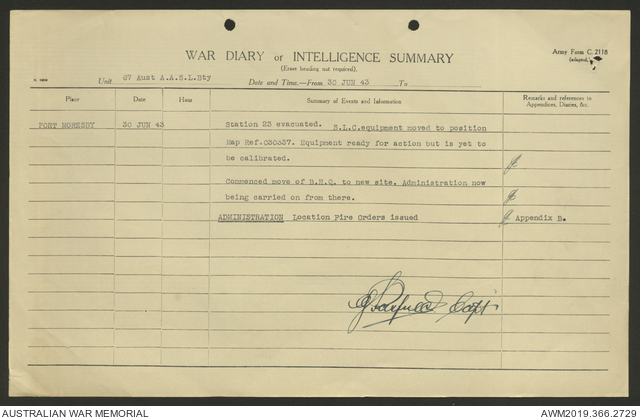 WAR DIARY or INTELLIGENCE SUMMARY
Army Form C. 2118
(adapted)
(Erase heading not required).
Unit 67 Aust A.A.S.L.Bty
Date and Time.—From 30 JUN 43 To
Place Date Hour Summary of Events and Information Remarks and references to
Appendices, Diaries, &c.
PORT MORESBY 30 JUN 43 Station 23 evacuated. S.L.C.equipment moved to position
Map Ref.030337. Equipment ready for action but is yet to
be calibrated.
Commenced move of B.H.Q. to new site. Administration now
being carried on from there.
ADMINISTRATION Location Fire Orders issued Appendix B.
Capt
AUSTRALIAN WAR MEMORIAL AWM2019.366.2729